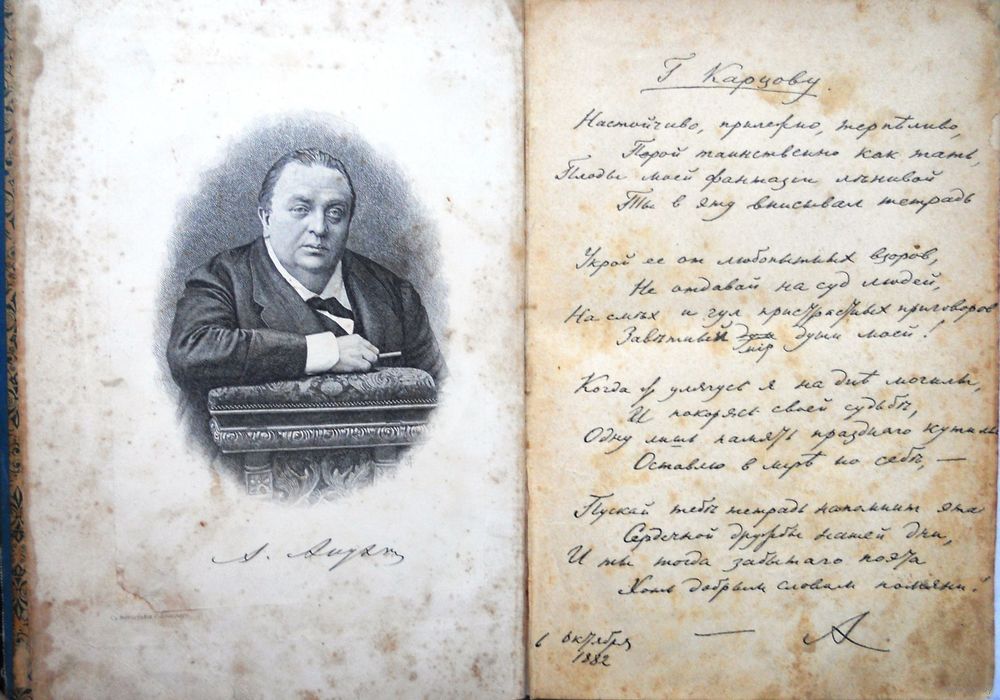 А. Апухтин
Г Карцову.
Настойчиво, прилежно, терпѣливо,
Порой таинственно как тать,
Плоды моей фантазіи лѣнивой
Ты в эту вписывал тетрадь
Укрой ее от любопытных взоров,
Не отдавай на суд людей,
На смѣх и гул пристрастных приговоров
Завѣтный мір души моей!
Когда ж улягусь я на днѣ могилы,
И покорясь своей судьбѣ,
Одну лишь память празднаго кутилы
Оставлю в мірѣ по себѣ, —
Пускай тебѣ тетрадь напомнит эта
Сердечной дружбы нашей дни,
И ты тогда забытаго поэта
Хоть добрым словом помяни!
— А.
6 октября
1882